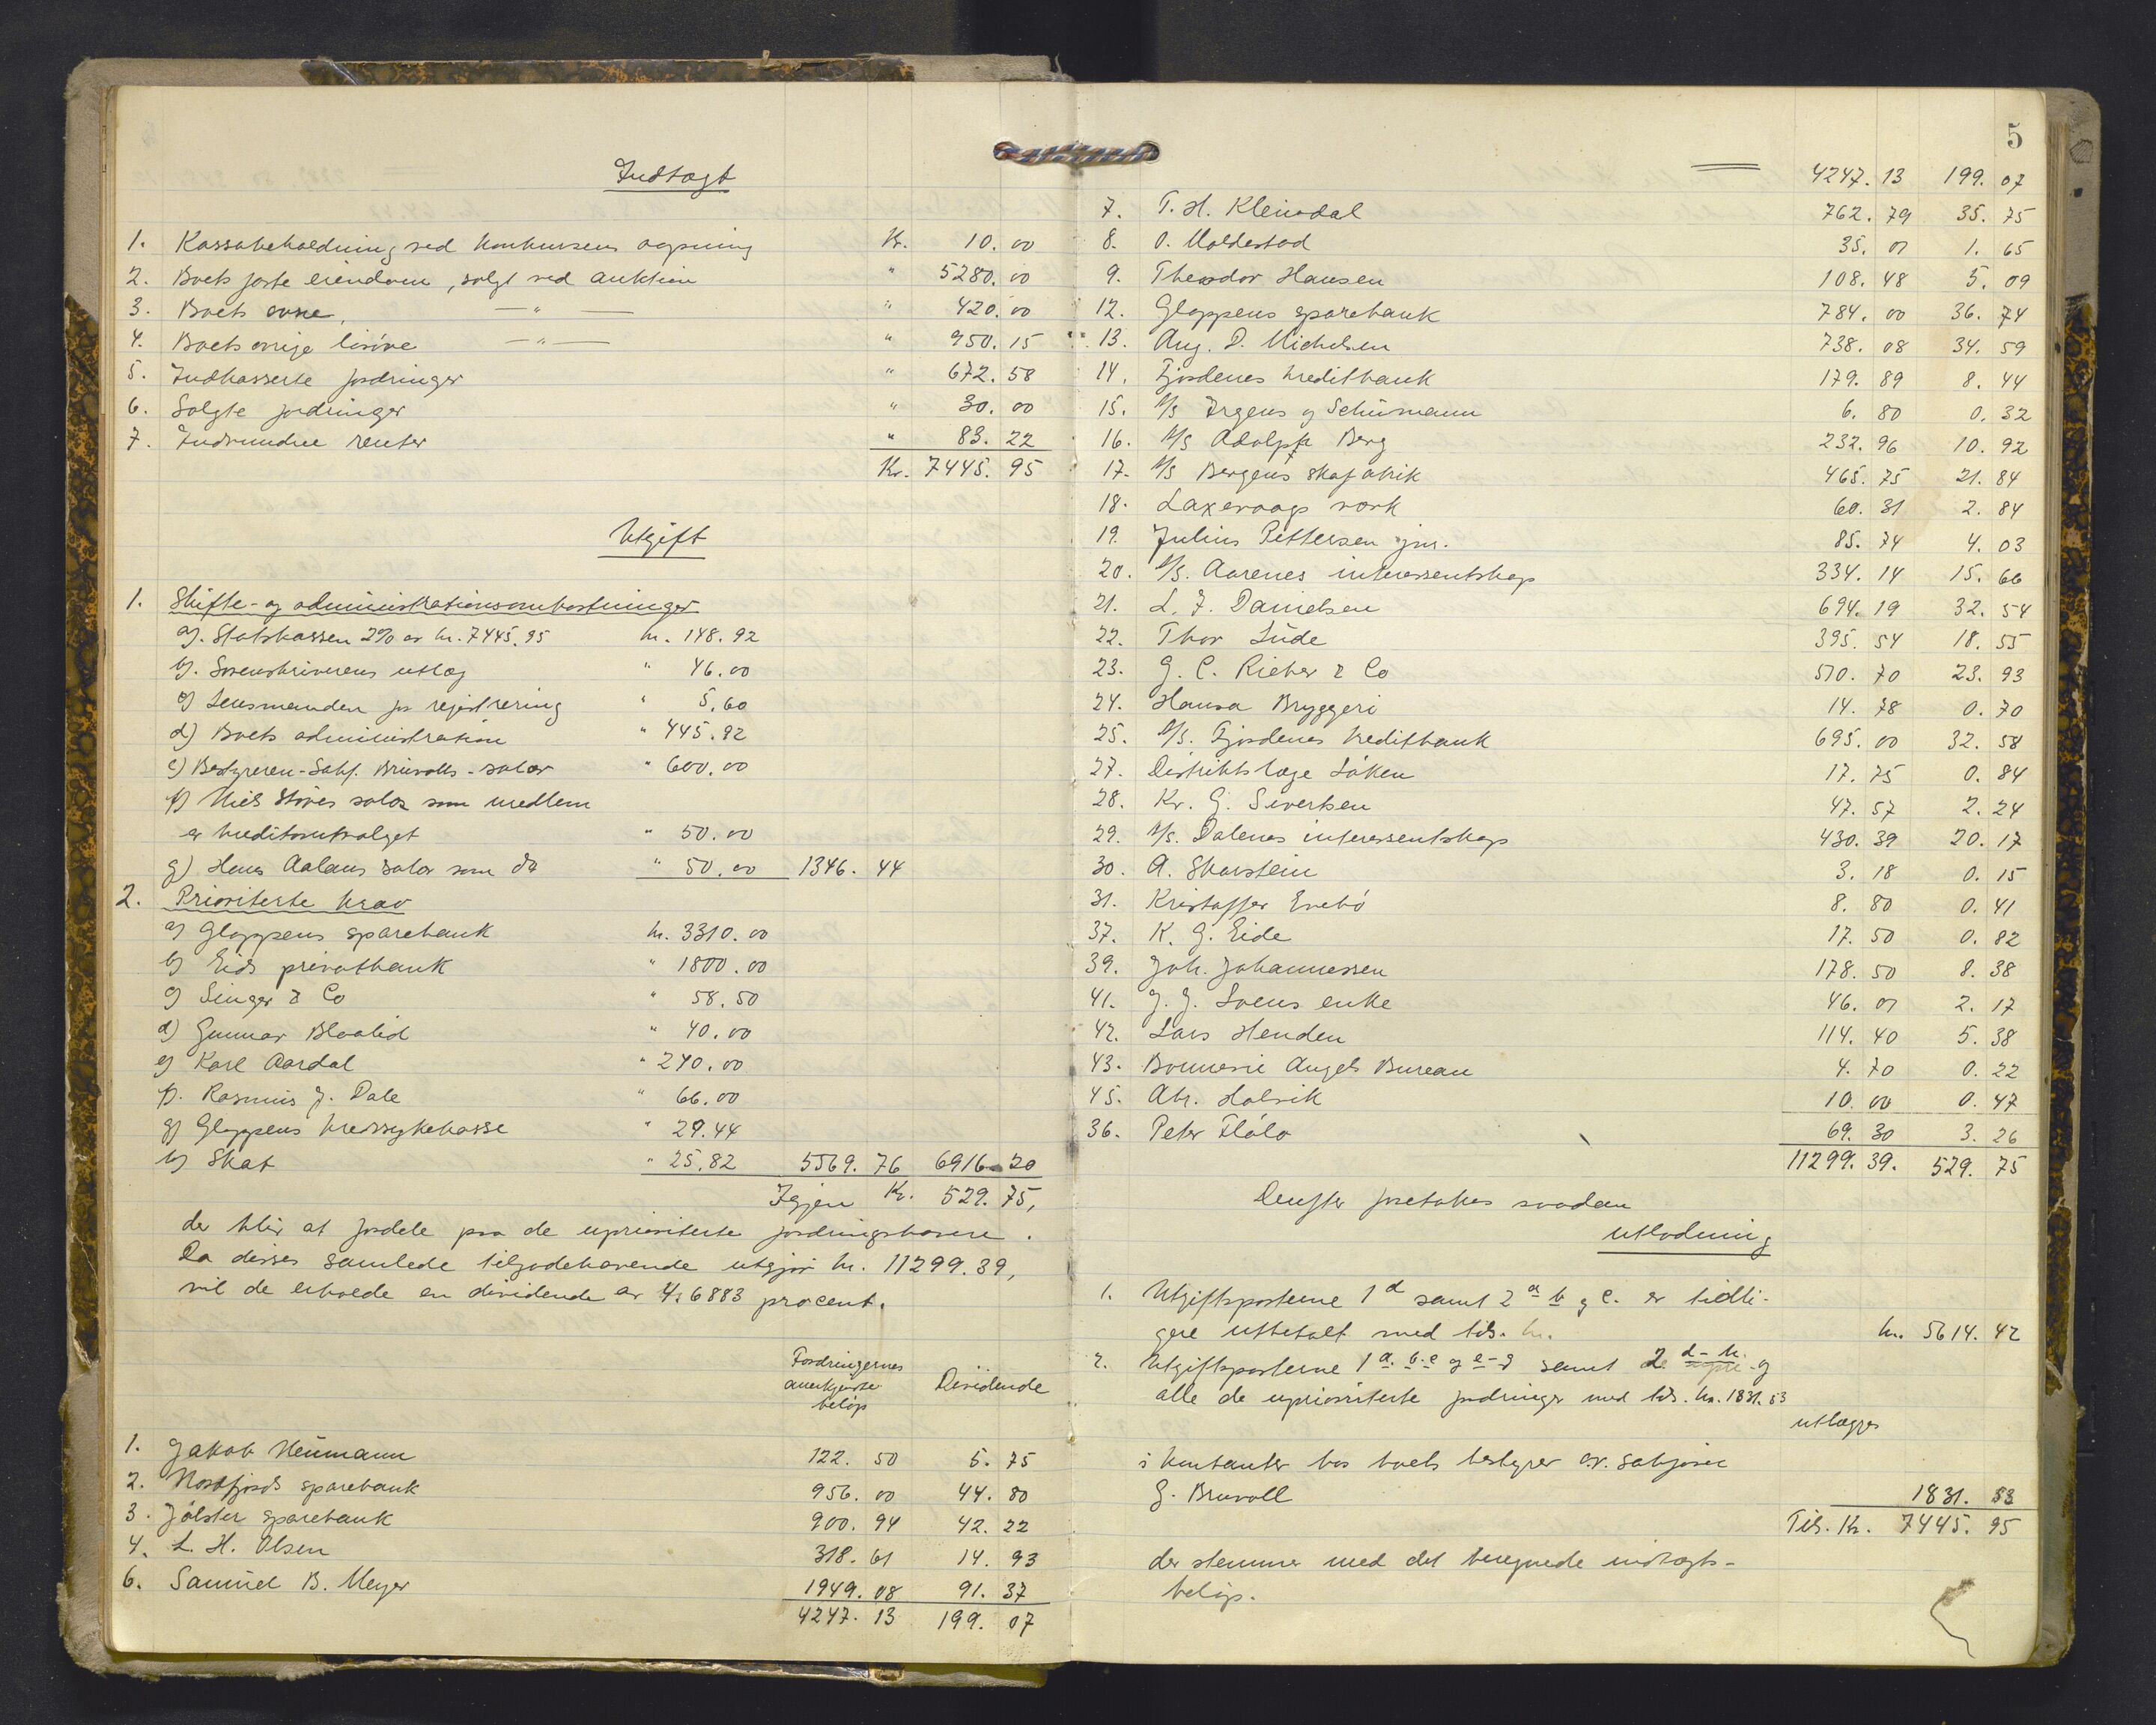 Indtægt
1. Kassabeholdning ved konkursens aapning Kr. 10.00
2. Boets faste eiendom, solgt ved auktion " 5280.00
3. Boets — " — " 420.00
4. Boets øvrige løsøre — " — " 950.15
5. Indkasserte fordringer " 672.58
6. Solgte fordringer " 30.00
7. Indvundne renter " 83.22
Kr. 7445.95
Utgift
1. Skifte- og administrationsomkostninger
a). Statskassen 2% av kr. 7445.95 kr. 148.92
b). Sorenskriverens utlæg " 46.00
c) Lensmanden for registrering " 5.60
d) Boets administration " 445.92
e) Bestyreren - Sakf. Bruvolls - salær " 600.00
f) Støves salær som medlem
av kreditorutvalget " 50.00
g) Hans Aalans salær som do " 50.00 1346.44
2. Prioriterte krav
a) Gloppens sparebank kr. 3310.00
b) Eids privatbank " 1800.00
c) Singer & Co " 58.50
d) Gunnar Blaalid " 40.00
e) Karl Aardal " 240.00
f). Rasmus J. Dale " 66.00
g) Gloppens kredssykekasse " 29.44
h) Skat " 25.82 5569.76 6916.20
Igjen Kr. 529.75,
der blir at fordele paa de uprioriterte fordringshavere.
Da disses samlede tilgodehavende utgjør kr. 11299.39,
vil de erholde en dividende av 4,6883 procent.
Fordringernes
anerkjendte
beløp Dividende
1. Jakob Neumann 122.50 5.75
2. Nordfjords sparebank 956.00 44.80
3. Jølster sparebank 900.94 42.22
4. L. H. Olsen 318.61 14.93
6. Samuel B. Meyer 1949.08 91.37
4247.13 199.07
5
4247.13 199.07
7. T. H. Kleivdal 762.79 35.75
8. O. Moldestad 35.01 1.65
9. Theodor Hansen 108.48 5.09
12. Gloppens sparebank 784.00 36.74
13. Aug. D. Michelsen 738.08 34.59
14. Fjordenes kreditbank 179.89 8.44
15. A/S Irgens og Schumann 6.80 0.32
16. A/S Adolph Berg 232.96 10.92
17. A/S Bergens skofabrik 465.75 21.84
18. Laxevaag verk 60.31 2.84
19. Julius Pettersen jnr. 85.74 4.03
20. A/S. Aarenes interessentskap 334.14 15.66
21. L. J. Danielsen 694.19 32.54
22. Thor Lude 395.54 18.55
23. G. C. Rieber & Co 510.70 23.93
24. Hansa Bryggeri 14.78 0.70
25. A/S. Fjordenes kreditbank 695.00 32.58
27. Distriktslæge Løken 17.75 0.84
28. Kr. G. Sivertsen 47.57 2.24
29. A/S. Dalenes interessentskap 430.39 20.17
30. A. Skarstein 3.18 0.15
31. Kristoffer Evebø 8.80 0.41
37. K. G. Eide 17.50 0.82
39. Joh. Johannessen 178.50 8.38
41. J. J. Loens enke 46.01 2.17
42. Lars Henden 114.40 5.38
43. Bonnevie Angels Bureau 4.70 0.22
45. Abr. Holvik 10.00 0.47
36. Peter Flølo 69.30 3.26
11299.39. 529.75
Derefter foretokes saadan
utlodning
1. Utgiftsposterne 1 d samt 2 a b og c. er tidli-
gere utbetalt med tils. kr. kr. 5614.42
2. Utgiftsposterne 1 a. b. c og e-g samt 2 d-h. og
alle de uprioriterte fordringer med tils. kr. 1831.53
utlægges
i kontanter hos boets bestyrer o.r. sakfører
G. Bruvoll 1831.53
Tils. Kr. 7445.95
der stemmer med det beregnede indtægts-
beløp.